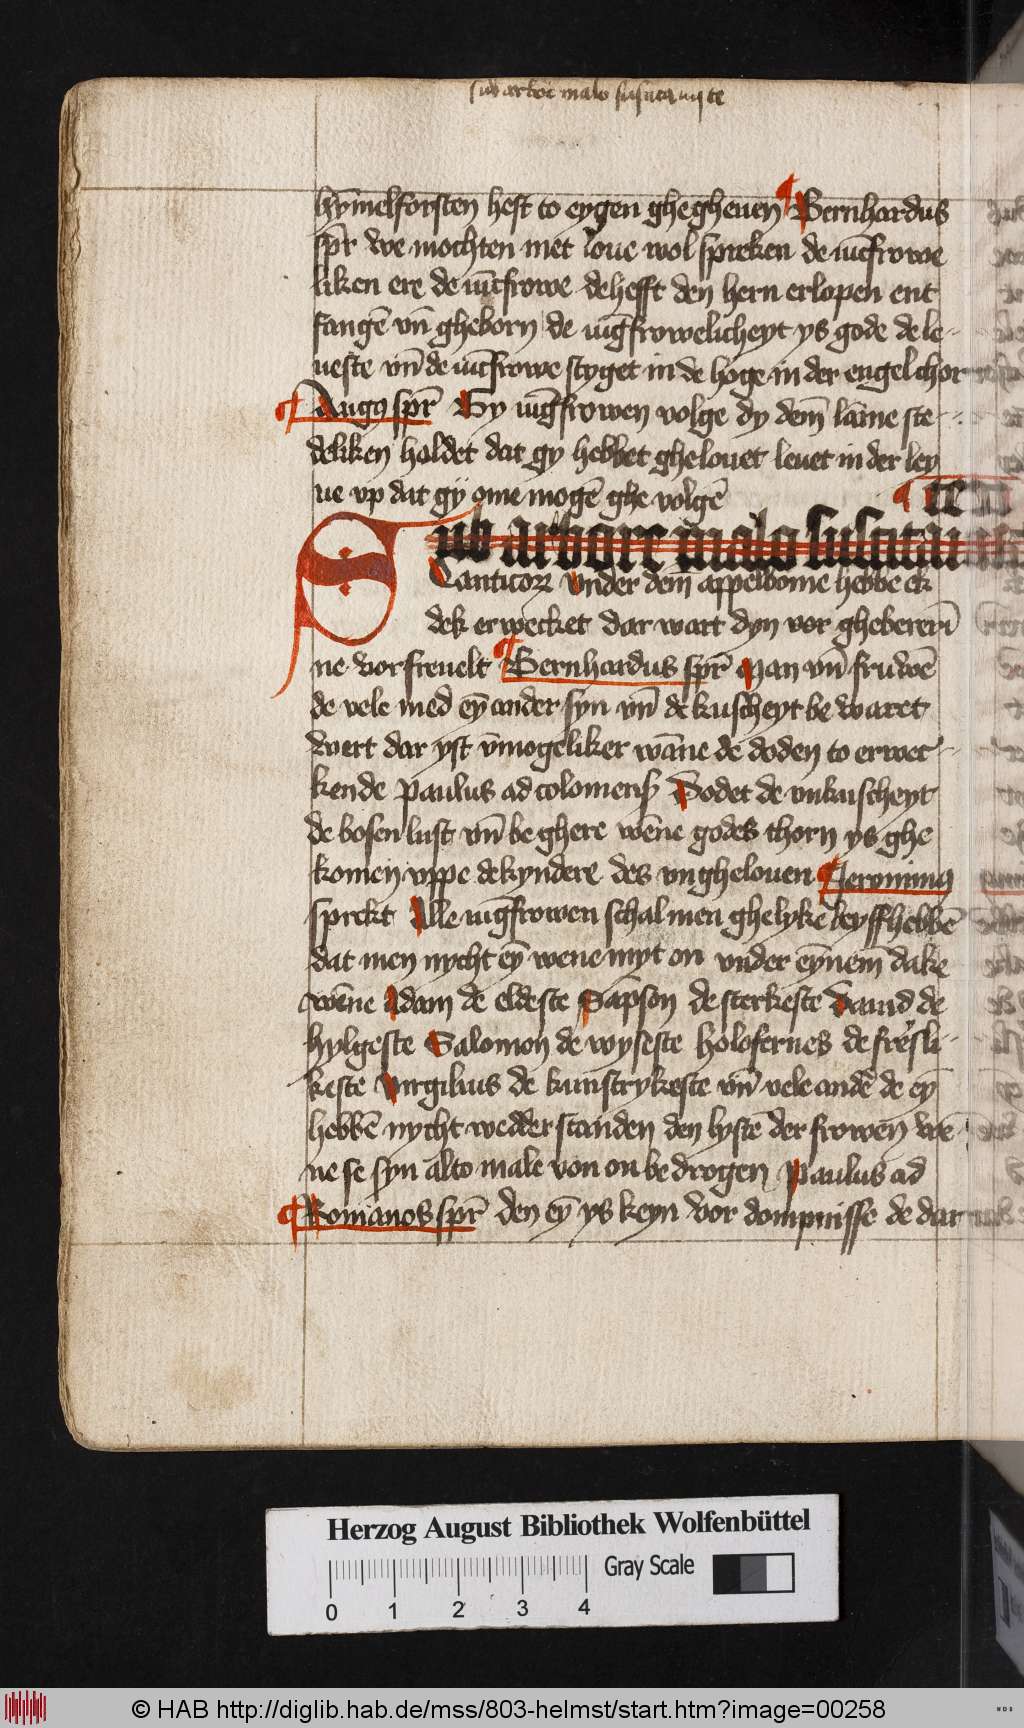 sub arbore malo suscitaui te
hȳmelforsten heft to eygen ghegheuen Bernhardus
spr̄ we mochten met loue wol spreken de iūcfrowe
liken ere de iūcfrowe de hefft den hern erlopen ent
fangē vn̄ gheborn de iūgfrowelicheyt ys gode de le
ueste vn̄ de iūcfrowe styget in de hoge in der engel chor
Augꝰ spr̄ Gy iūgfrowen volge dy dem̄ lāme ste
deliken holdet dat gy hebbet ghelouet leuet in der ley
ue vp dat gy ome mogē ghe volgē
te
Sub arbore malo suscitaui
Canticoꝝ vnder dem̄ appelbome hebbe ek
dek erwecket dar wart dyn vor ghebererī
ne vorfreuelt Bernhardus spr̄ Man vn̄ fruwē
de vele med eȳ ander syn vn̄ de kuscheyt be waret
wert dar yst v̄mogeliker wāne de doden to erwec
kende Paulus ad colomens Dodet de vnkuscheyt
de bosen lust vn̄ be ghere wēne godes thorn ys ghe
komen vppe de kyndere des vnghelouen Jeronimꝰ
sprekt Alle iūgfrowen schal men ghelyke leyff hebbē
dat men nycht eȳ wene myt on vnder eȳnem̄ dake
wēne Adam de eldeste Sāpson de sterkeste Dauid de
hylgeste Salomon de wyseste holofernes de fresli
keste Virgilius de kunstrykeste vn̄ vele andē de eȳ
hebbē nycht wedder standen den lystē der frowen wē
ne se syn alto male von on bedrogen Paulus ad
Romanos spr̄ den eȳ ys keyn vor dompnisse de dar
Herzog August Bibliothek Wolfenbüttel
Gray Scale
0 1 2 3 4
© HAB http://diglib.hab.de/mss/803-helmst/start.htm?image=00258